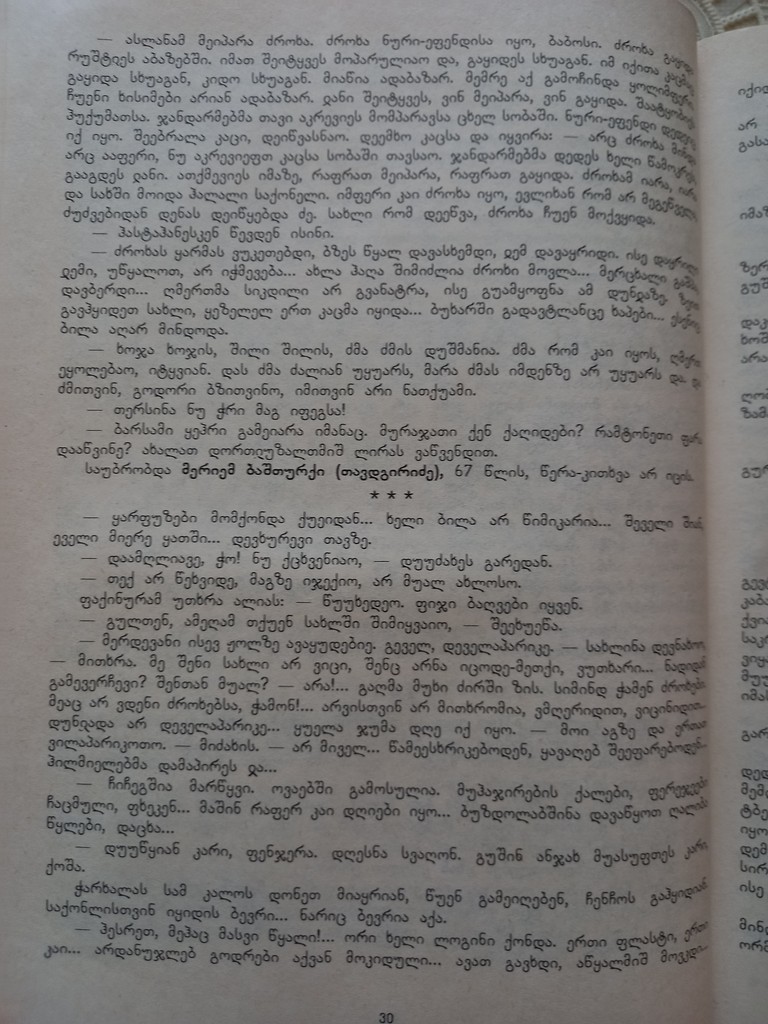 — ასლანამ მეიპარა ძროხა. ძროხა ნური-ეფენდისა იყო, ბაბოსი. ძროხა
რუშტიეს აბაზებში. იმათ შეიტყვეს მოპარულიაო და, გაყიდეს სხუაგან. იმ იქითა
გაყიდა სხუაგან, კიდო სხუაგან. მიაწია ადაბაზარ. მემრე აქ გამოჩინდა
ჩუენი ხისიმები არიან ადაბაზარ. ჲანი შეიტყვეს, ვინ მეიპარა, ვინ გაყიდა.
ჰუქუმათსა. ჯანდარმებმა თავი აკრევიეს მომპარავსა ცხელ სობაში. ნური-ეფენდი
იქ იყო. შეებრალა კაცი, დეიწვასნაო. დეემხო კაცსა და იყვირა: — არც ძროხა მინდა
არც ააფერი, ნუ აკრევიეფთ კაცსა სობაში თავსაო. ჯანდარმებმა დედეს ხელი
გააგდეს ჲანი. ათქმევიეს იმაზე, რაფრათ მეიპარა, რაფრათ გაყიდა. ძროხამ იარა, იარა
და სახში მოიდა ჰალალი საქონელი. იმფერი კაი ძროხა იყო, ევლიხან რომ არ
ძუძვებიდან დენას დეიწყებდა ძე. სახლი რომ დეეწვა, ძროხა ჩუენ მოქვყიდა.
— ჰასტაჰანესკენ წევდენ ისინი.
— ძროხას ყარმას ვუკეთებდი, ბზეს წყალ დავასხემდი, ჲემ დავაყრიდი. ისე
ჲემი, უწყალოთ, არ იჭმევება... ახლა ჰაღა შიმიძლია ძროხი მოვლა... მერცხალი
დავბერდი... ღმერთმა სიკდილი არ გვანატრა, ისე გუამყოფნა ამ დუნჲაზე.
გავჰყიდეთ სახლი, ყეზელელ ერთ კაცმა იყიდა... ბუხარში გადავტლანცე ხაპები...
ბილა აღარ მინდოდა.
— ხოჯა ხოჯის, შილი შილის, ძმა ძმის დუშმანია. ძმა რომ კაი იყოს, ღმერთ
ეყოლებაო, იტყვიან. დას ძმა ძალიან უყუარს, მარა ძმას იმდენზე არ უყუარს და.
ძმითვინ, გოდორი ბზითვინო, იმითვინ არი ნათქუამი.
— თერსინა ნუ ჭრი მაგ იფეგსა!
— ბარსამი ყეჰრი გამეიარა იმანაც. მურაჯათი ქენ ქაღიდები? რამტონეთი
დააწვინე? ახალათ დორთჲუზალთმიშ ლირას ვაწვენდით.
საუბრობდა მერიემ ბაშთურქი (თავდგირიძე), 67 წლის, წერა-კითხვა არ იცის.
* * *
— ყარფუზები მომქონდა ქუეიდან... ხელი ბილა არ წიმიკარია... შეველი შიან,
ეველი მიერე ყათში... დევხურევი თავზე.
— დაამღლიავე, ჭო! ნუ ქცხვენიაო, — დუუძახეს გარედან.
— თექ არ წეხვიდე, მაგზე იჯექიო, არ მუალ ახლოსო.
ფაქინურამ უთხრა ალიას: — წუუხედეო. ფიჯი ბაღვები იყვენ.
— გულთენ, ამეღამ თქუენ სახლში შიმიყვაიო, — შეეხუეწა.
— მერდევანი ისევ ჟოლზე ავაყუდებიე. გეველ, დეველაპარიკე. — სახლინა დევნახო,
— მითხრა. მე შენი სახლი არ ვიცი, შენც არნა იცოდე-მეთქი, ვუთხარი... ნადიდან
გამევერჩევი? შენთან მუალ? — არა!... გაღმა მუხი ძირში ზის. სიმინდ ჭამენ ძროხები
მეაც არ ვდენი ძროხებსა, ჭამონ!... არვისთვინ არ მითხრომია, ვმღერიდით, ვიცინიდით...
დუნჲადა არ დეველაპარიკე... ყუელა ჯუმა დღე იქ იყო. — მოი აგზე და ერთათ
ვილაპარიკოთო. — მიძახის. — არ მიველ... წამეესხრიკებოდენ, ყავაღებ შეეფარებოდენ...
ჰილმიელებმა დამაპირეს ჲა...
— ჩიჩეგშია მარწყვი. ოვაებში გამოსულია. მუჰაჯირების ქალები, ფერეჯეები
ჩაცმული, ფხეკენ... მაშინ რაფერ კაი დღიები იყო... ბუზდოლაბშინა დავაწყოთ
წყლები, დაცხა...
— დუუწყიან კარი, ფენჯერა. დღესნა სვაღონ. გუშინ ანჯახ მუასუფთეს კარი
ქოშა.
ჭარხალას სამ კალოს დონეთ მიაყრიან, წუენ გამეიღებენ, ჩენჩოს გაჰყიდიან
საქონლისთვინ იყიდის ბევრი... ნარიც ბევრია აქა.
— ჰესრეთ, მეჰაც მასვი წყალი!... ორი ხელი ლოგინი ქონდა. ერთი ფლასტი, ერთი
კაი... არდანუჯლებ გოდრები აქვან მოკიდული... ავათ გავხდი, აწყალმიშ მოვკდი...
30